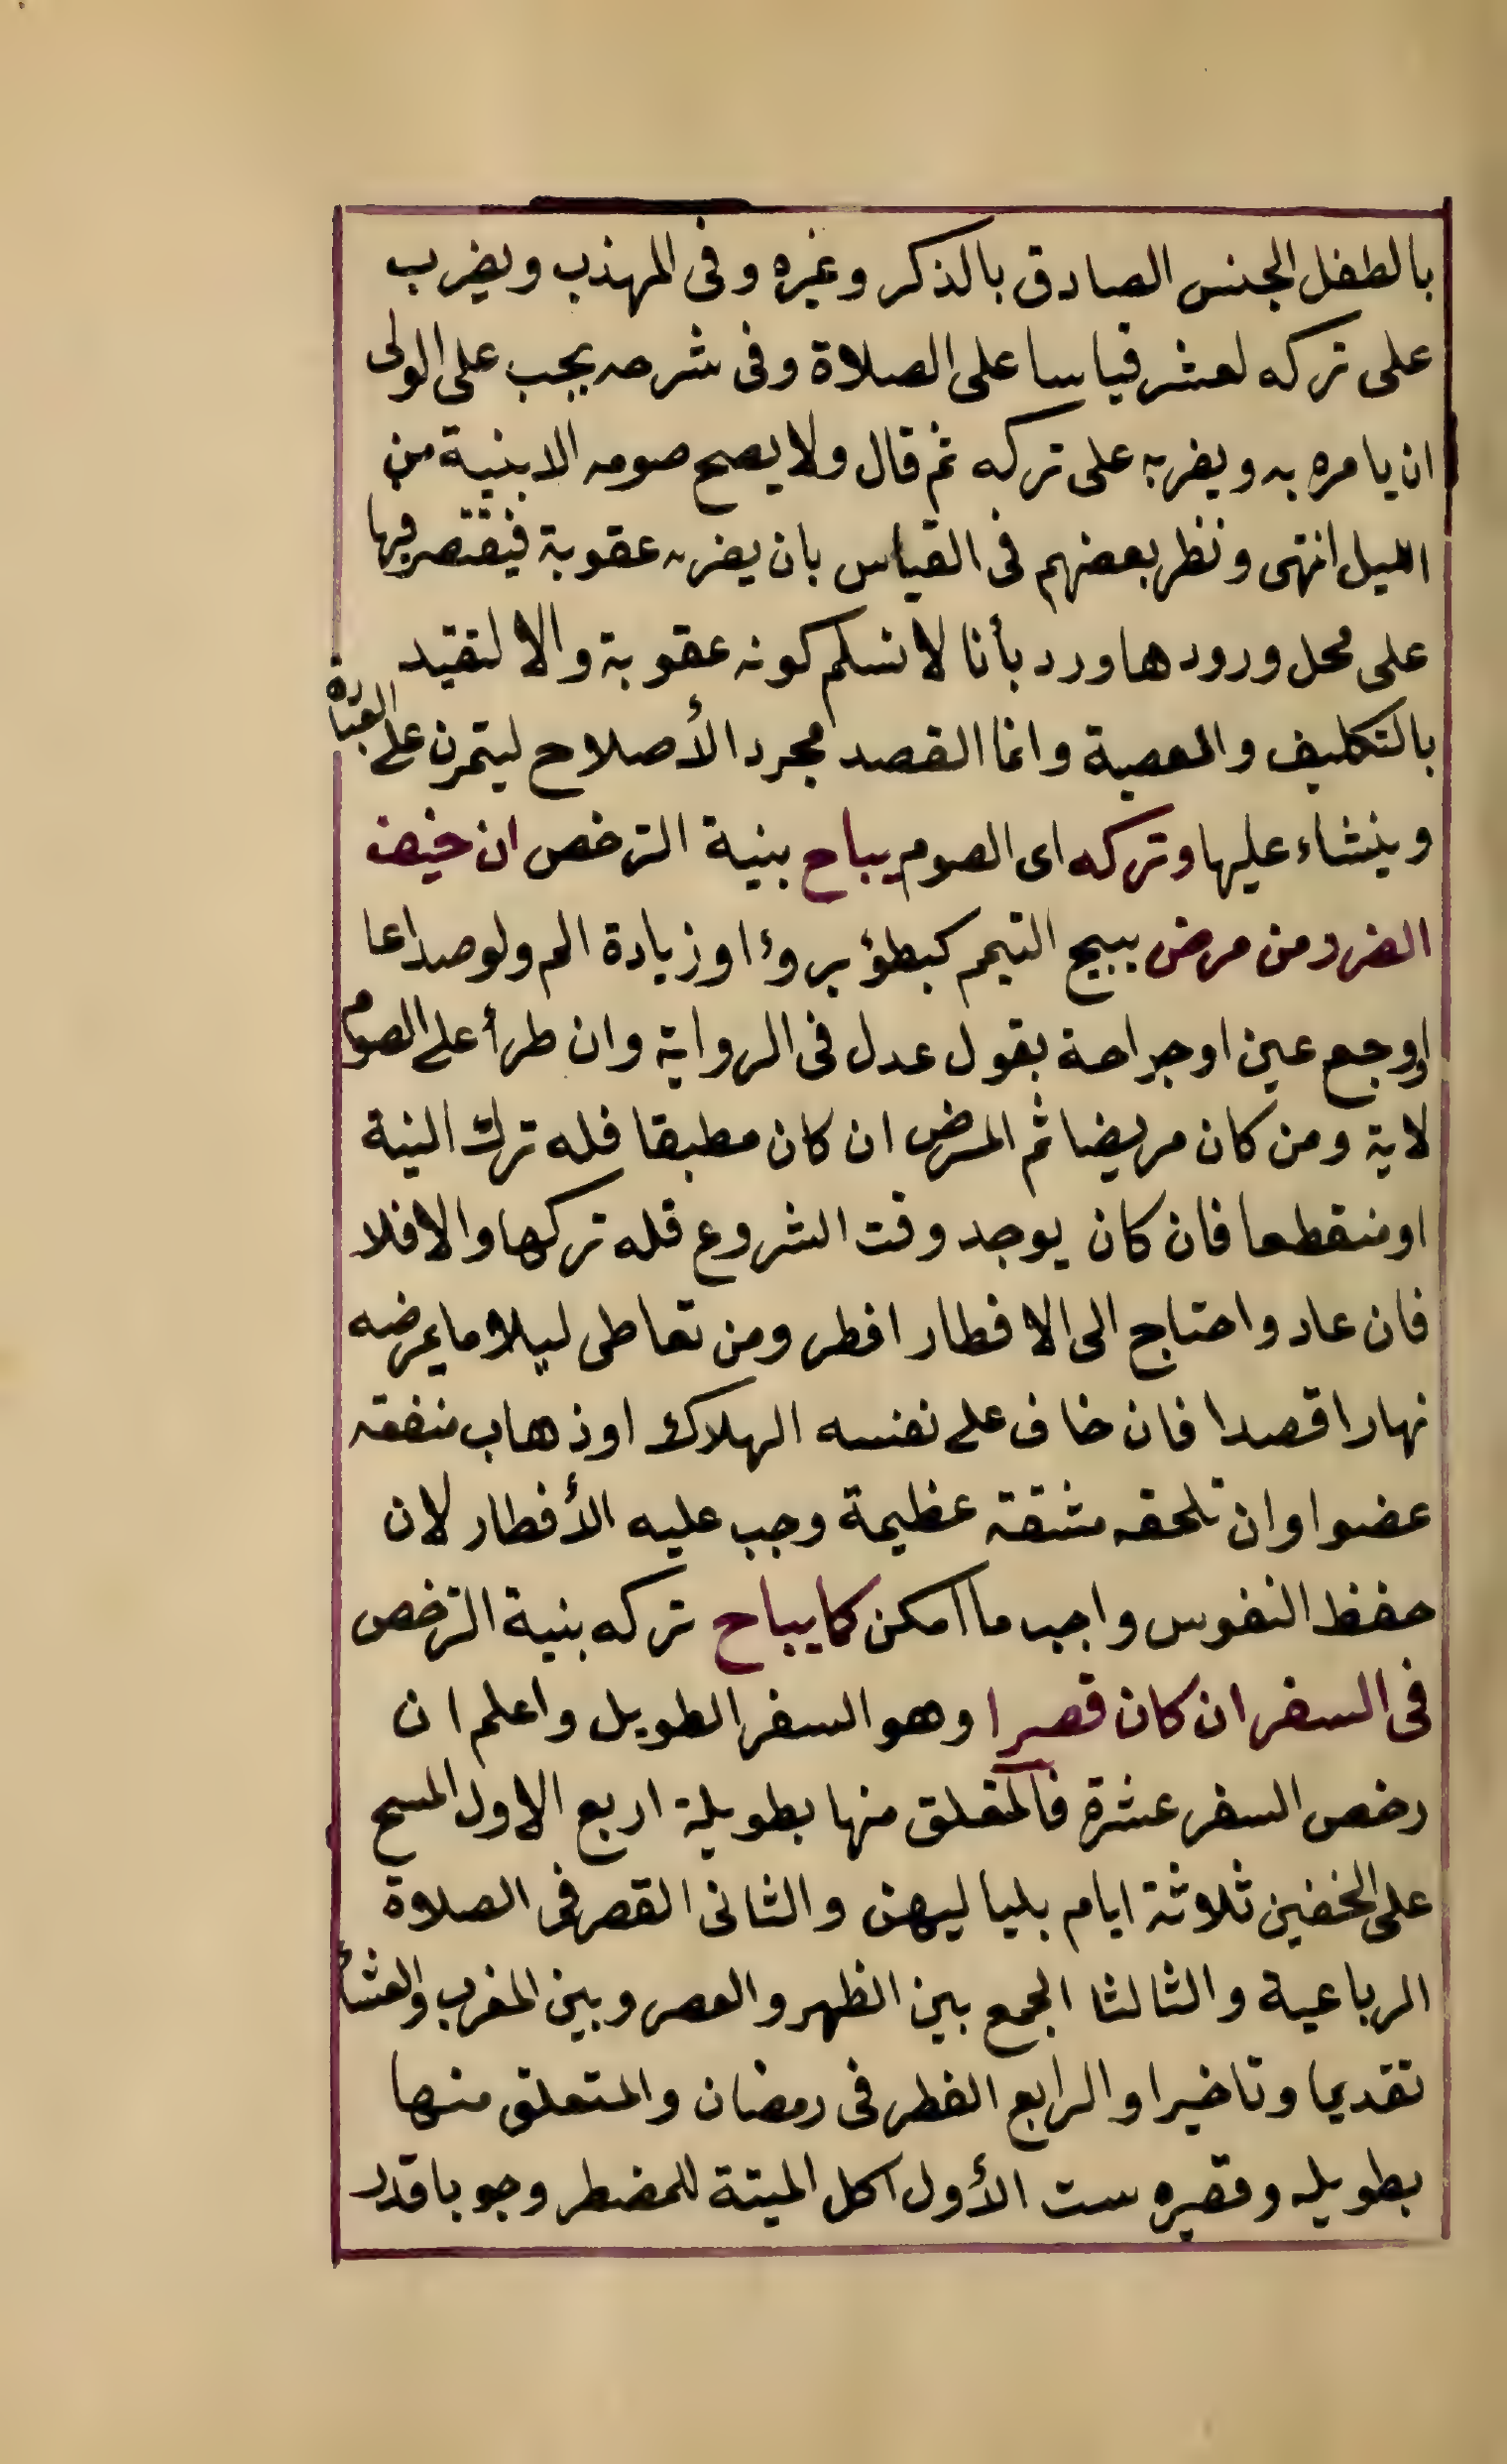 بالطفل الجنس الصادق بالذكر وغيره وفى المهذب ويضرب
على تركه لعشر قياسا على الصلاة وفى شرحه يجب على الولى
ان يامره به ويضربه على تركه ثم قال ولا يصح صومه الا بنية من
الليل انتهى ونظر بعضهم فى القياس بان يضربه عقوبة فيقتصر فيها
على محل ورودها ورد بأنا لا نسلم كونه عقوبة والا لتقيد
بالتكليف والمعصية وانما القصد مجرد الأصلاح ليتمرن على العبادة
وينشاء عليها وتركه اى الصوم يباح بنية الترخص ان خيف
الضرر من مرض يبيح التيمم كبطؤ بروءٔ او زيادة الم ولو صداعا
او وجع عين او جراحة بقول عدل فى الرواية وان طرأ على الصوم
لاية ومن كان مريضا ثم المرض ان كان مطبقا فله ترك النية
او منقطعا فان كان يوجد وقت الشروع فله تركها والا فلا
فان عاد واحتاج الى الافطار افطر ومن تعاطى ليلا ما يمرضه
نهارا قصدا فان خاف على نفسه الهلاك او ذهاب منفعة
عضو او ان تلحقه مشقة عظيمة وجب عليه الأفطار لان
حفظ النفوس واجب ما امكن كما يباح تركه بنية الترخص
فى السفر ان كان قصرا وهو السفر الطويل واعلم ان
رخص السفر عشرة فالمتعلق منها بطويلة اربع الاول المسح
على الخفين ثلاثة ايام بلياليهن والثانى القصر فى الصلاة
الرباعية والثالثا الجمع بين الظهر والعصر وبين المغرب والعشأ
تقديما وتاخيرا والرابع الفطر فى رمضان والمتعلق منها
بطويله وقصيره ست الأول اكل الميتة للمضطر وجوبا قدر